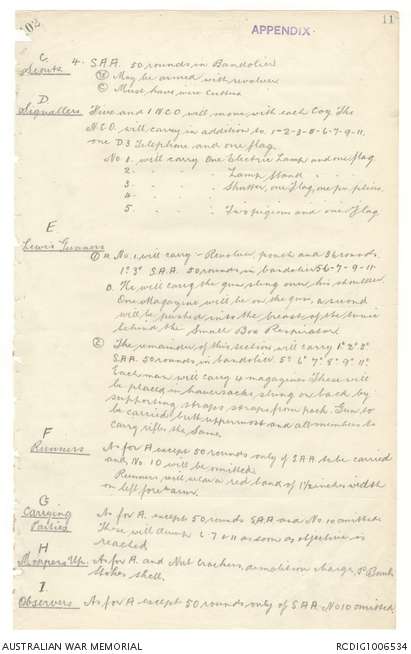 102
APPENDIX
11
C
Scouts
4. S.A.A. 50 rounds in Bandolier
(b) May be armed with revolver
(c) Must have wire cutters
D
Signallers
Five and 1 N.C.O. will move with each Coy. The
N.C.O. will carry in addition to 1-2-3-5-6-7-9-11,
one D3 Telephone and one flag.
No 1. will carry One Electric Lamp and one flag
2. " " Lamp Stand "
3 " " Shutter, one flag, one pr. pliers.
4. " "
5. " " Two pigeons and one flag
E
Lewis Gunners
(1) a. No. 1 will carry - Revolver, pouch and 36 rounds.
1° 3° S.A.A. 50 rounds in bandolier 5 6-7-9-11-
He will carry the gun sling over his shoulder
One Magazine will be on the gun, a second
will be pushed into the breast of the tunic
behind the Small Box Respirator.
(2) The remainder of this section will carry 1° 2° 3°
S.A.A. 50 rounds in bandolier 5° 6° 7° 8° 9° 11°
Each man will carry 4 magazines These will
be placed in haversacks, slung on back by
supporting straps, straps from pack. Gun to
be carried butt uppermost and all members to
carry rifles the same.
F
Runners
As for A except 50 rounds only of S.A.A. to be carried
and No. 10 will be omitted.
Runners will wear a red band of 1½ inches width
on left forearm.
G
Carrying
Parties
As for A. except 50 rounds S.A.A and No. 10 omitted
These will dump 6 7 & 11 as soon as objective is
reached
H
Moppers Up.
As for A. and Nut Crackers, demolition charge, P. Bomb
Stokes shell.
I
Observers
As for A except 50 rounds only of S.A.A. No 10 omitted
AUSTRALIAN WAR MEMORIAL
RCDIG1006534